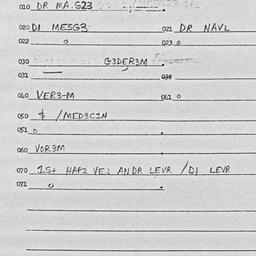 010 DR MA.G23
020 DI MESG3 021 DR NAVL
022 0 023 0
030 G3DER3M
031 032
040 VER3-M 041 0
050 $ /MED3C1N
051 0
060 VOR3M
070 1St HAR2 VE3 ANDR LEVR /DI LEVR
071 0